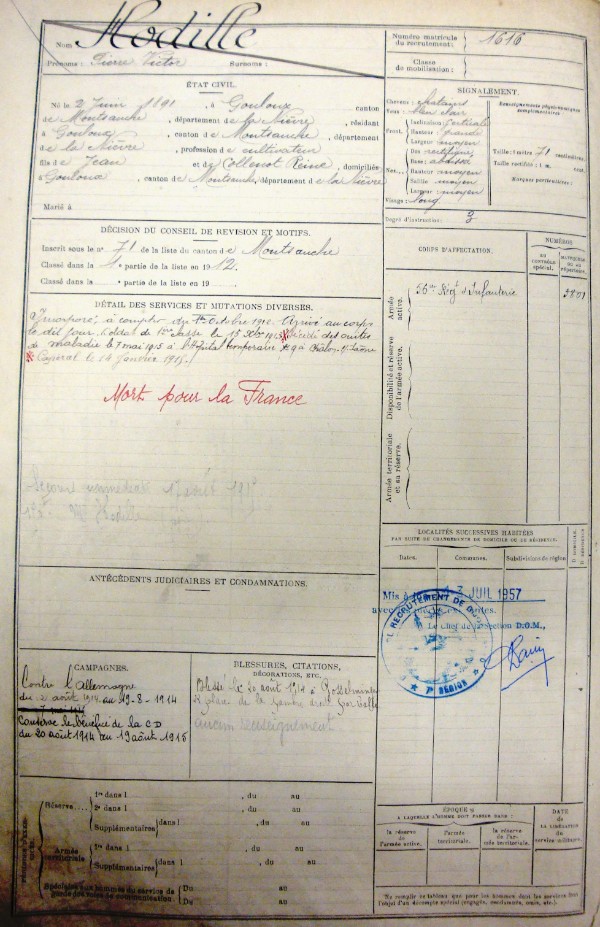 Nom : Hodille
Prénoms : Pierre Victor Surnoms :
Numéro matricule
du recrutement : 1616
Classe
de mobilisation :
ÉTAT CIVIL.
Né le 2 Juin 1891, à Gouloux canton
de Montsauche, département de la Nièvre, résidant
à Gouloux, canton de Montsauche, département
de la Nièvre, profession de cultivateur
fils de Jean et de Collenot Reine, domiciliés
à Gouloux, canton de Montsauche, département de la Nièvre
Marié à
SIGNALEMENT.
Cheveux : châtains
Yeux :
Front. Inclinaison verticale
Hauteur grande
Largeur moyen
Nez Dos rectiligne
Base
Hauteur moyen
Saillie moyen
Largeur moyen
Visage : long
Renseignements physionomiques
complémentaires.
Taille : 1 mètre 71 centimètres.
Taille rectifiée : 1 m.
Marques particulières :
Degré d'instruction : 3
DÉCISION DU CONSEIL DE REVISION ET MOTIFS.
Inscrit sous le no 71 de la liste du canton de Montsauche
Classé dans la 1e partie de la liste en 1912.
Classé dans la partie de la liste en 19
CORPS D'AFFECTATION.
NUMÉROS
au
contrôle
spécial.
matricule
ou au
répertoire.
Armée
active.
56me Régt d'Infanterie
Disponibilité et réserve
de l'armée active.
Armée territoriale
et sa réserve.
DÉTAIL DES SERVICES ET MUTATIONS DIVERSES.
Incorporé à compter du Octobre 1912. Arrivé au corps
le dit jour. Soldat de classe le Décédé des suites
de maladie le 7 mai 1915 à l'Hôpital temporaire
Caporal le 14 Janvier 1915.
Mort pour la France
Secours immédiat 17 1915
ANTÉCÉDENTS JUDICIAIRES ET CONDAMNATIONS.
LOCALITÉS SUCCESSIVES HABITÉES
PAR SUITE DE CHANGEMENTS DE DOMICILE OU DE RÉSIDENCE.
Dates. Communes. Subdivisions de région
D. DOMICILE.
R. RÉSIDENCE.
Mis à JUIL 1957
Le Chef de la Section D.O.M.,
RECRUTEMENT DE
7e RÉGION
CAMPAGNES.
Contre l'Allemagne
du 2 août 1914 au 19-8-1914
Conserve le bénéfice de la CD
du 20 août 1914 au 19 août 1915
BLESSURES, CITATIONS,
DÉCORATIONS, ETC.
Blessé le 20 août 1914 à
plaie de la jambe droite par balle
aucun renseignement
Réserve
1re dans l , du au
2e dans l , du au
Supplémentaires dans l , du au
Armée
territoriale
1re dans l , du au
Supplémentaires dans l , du au
Spéciales aux hommes du service de
garde des voies de communication
Du au
Du au
ÉPOQUE
A LAQUELLE L'HOMME DOIT PASSER DANS :
la réserve
de l'armée active.
l'armée
territoriale.
la réserve
de l'armée territoriale.
DATE
de
LA LIBÉRATION
du
service militaire.